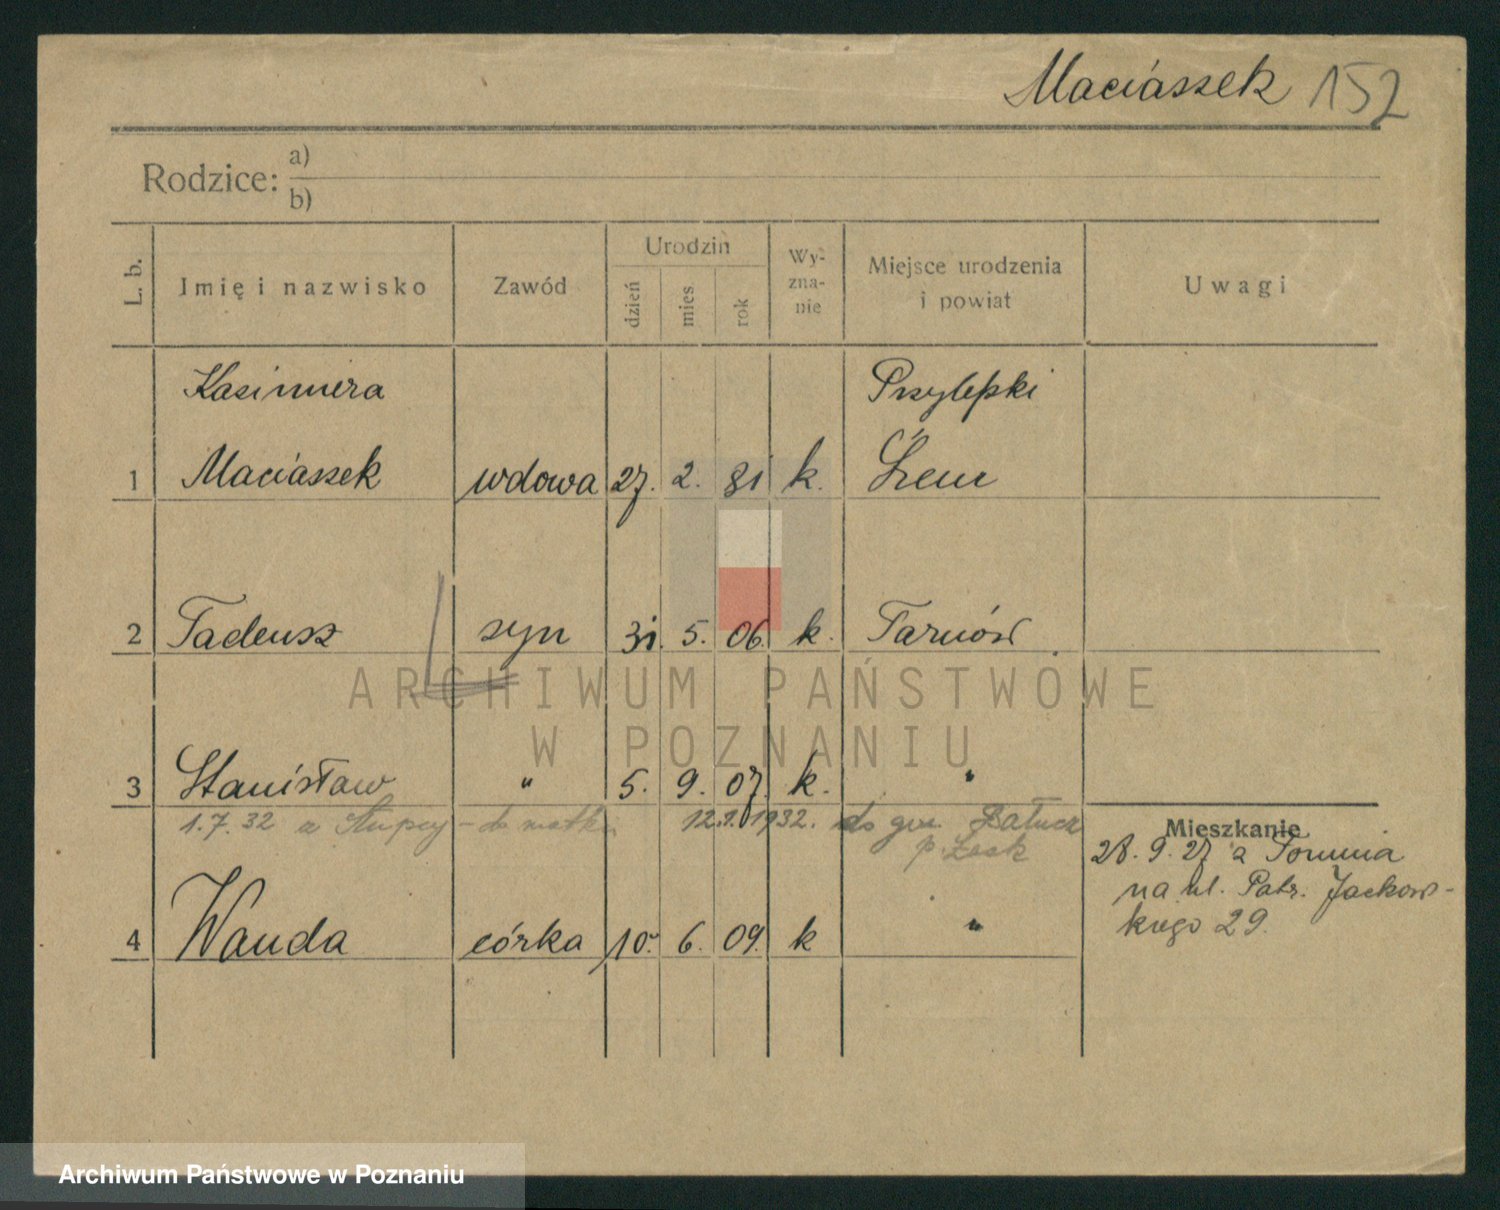 Maciászek 152
Rodzice: a)
b)
L. b.
Imię i nazwisko
Zawód
Urodzin
dzień
mies
rok
Wy-
zna-
nie
Miejsce urodzenia
i powiat
Uwagi
Kazimiera Przylepki
1 Maciászek wdowa 27. 2. 81 k. Śrem
2 Tadeusz syn 31. 5. 06. k. Tarnów
ARCHIWUM PAŃSTWOWE
W POZNANIU
3 Stanisław " 5. 9. 07. k. "
1.7.32 z Słupcy - do matki 12.9.1932. do gm.
Mieszkanie
28. 9. 27 z Torunia
na ul. Patr. Jackow-
kiego 29.
4 Wanda córka 10. 6. 09. k "
Archiwum Państwowe w Poznaniu